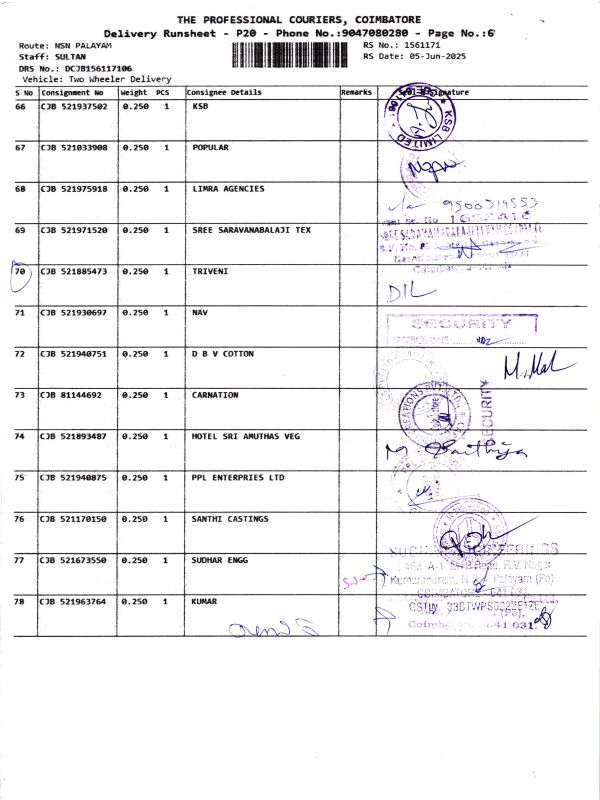 THE PROFESSIONAL COURIERS, COIMBATORE
Delivery Runsheet - P20 - Phone No.:9047080280 - Page No.:6
Route: NSN PALAYAM
RS No.: 1561171
Staff: SULTAN
RS Date: 05-Jun-2025
DRS No.: DCJB156117106
Vehicle: Two Wheeler Delivery
S No Consignment No Weight PCS Consignee Details Remarks Seal & Signature
66 CJB 521937502 0.250 1 KSB
KSB LIMITED
67 CJB 521033908 0.250 1 POPULAR
68 CJB 521975918 0.250 1 LIMRA AGENCIES
69 CJB 521971520 0.250 1 SREE SARAVANABALAJI TEX
70 CJB 521885473 0.250 1 TRIVENI
DIL
71 CJB 521930697 0.250 1 NAV
SECURITY
72 CJB 521940751 0.250 1 D B V COTTON
73 CJB 81144692 0.250 1 CARNATION
SECURITY
74 CJB 521893487 0.250 1 HOTEL SRI AMUTHAS VEG
75 CJB 521940875 0.250 1 PPL ENTERPRIES LTD
76 CJB 521170150 0.250 1 SANTHI CASTINGS
77 CJB 521673550 0.250 1 SUDHAR ENGG
78 CJB 521963764 0.250 1 KUMAR